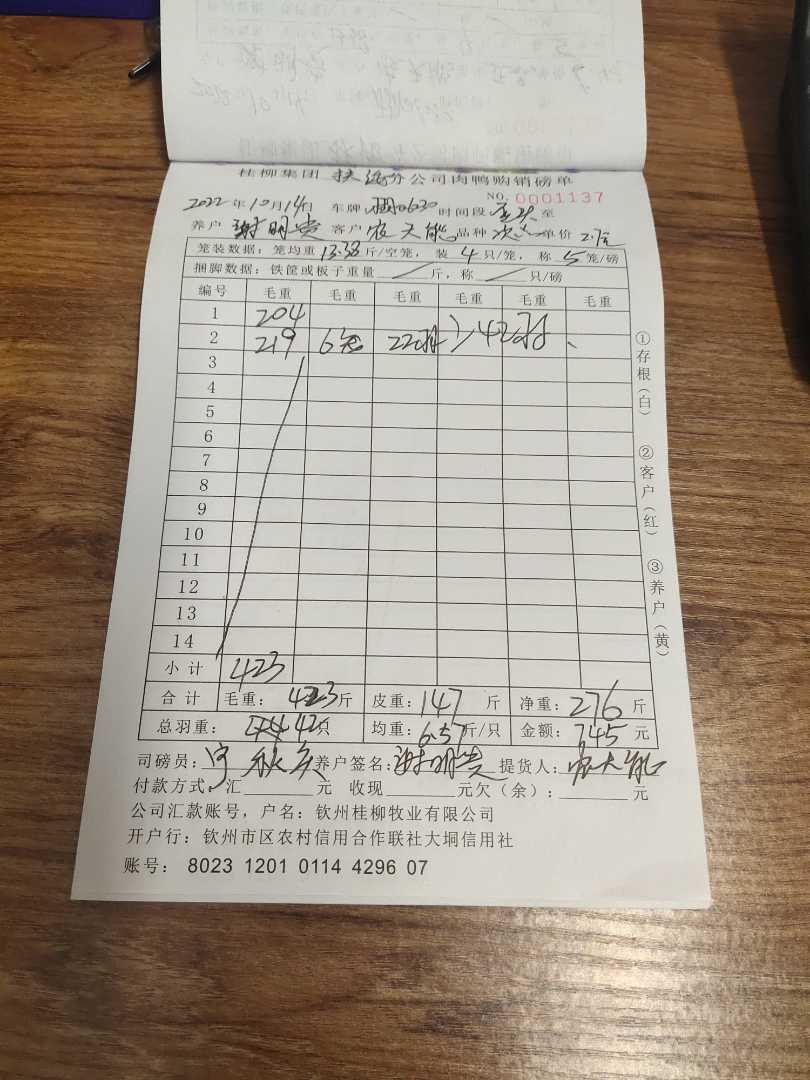 桂柳集团 扶绥分公司肉鸭购销磅单
NO. 0001137
2022年10月14日 车牌 0630 时间段 至
养户 谢明贵 客户 农大能 品种 次 单价 2.7元
笼装数据：笼均重 13.38 斤/空笼， 装 4 只/笼， 称 5 笼/磅
捆脚数据：铁筐或板子重量 / 斤，称 / 只/磅
编号 毛重 毛重 毛重 毛重 毛重 毛重
1 204
2 219 6笼 22羽 42羽
3
4
5
6
7
8
9
10
11
12
13
14
小计 423
合计 毛重：423斤 皮重：147 斤 净重：276 斤
总羽重：42只 均重：6.57斤/只 金额：745 元
司磅员：宁秋 养户签名：谢明贵 提货人：农大能
付款方式：汇 元 收现 元欠（余）： 元
公司汇款账号，户名：钦州桂柳牧业有限公司
开户行：钦州市区农村信用合作联社大垌信用社
账号： 8023 1201 0114 4296 07
①存根（白） ②客户（红） ③养户（黄）